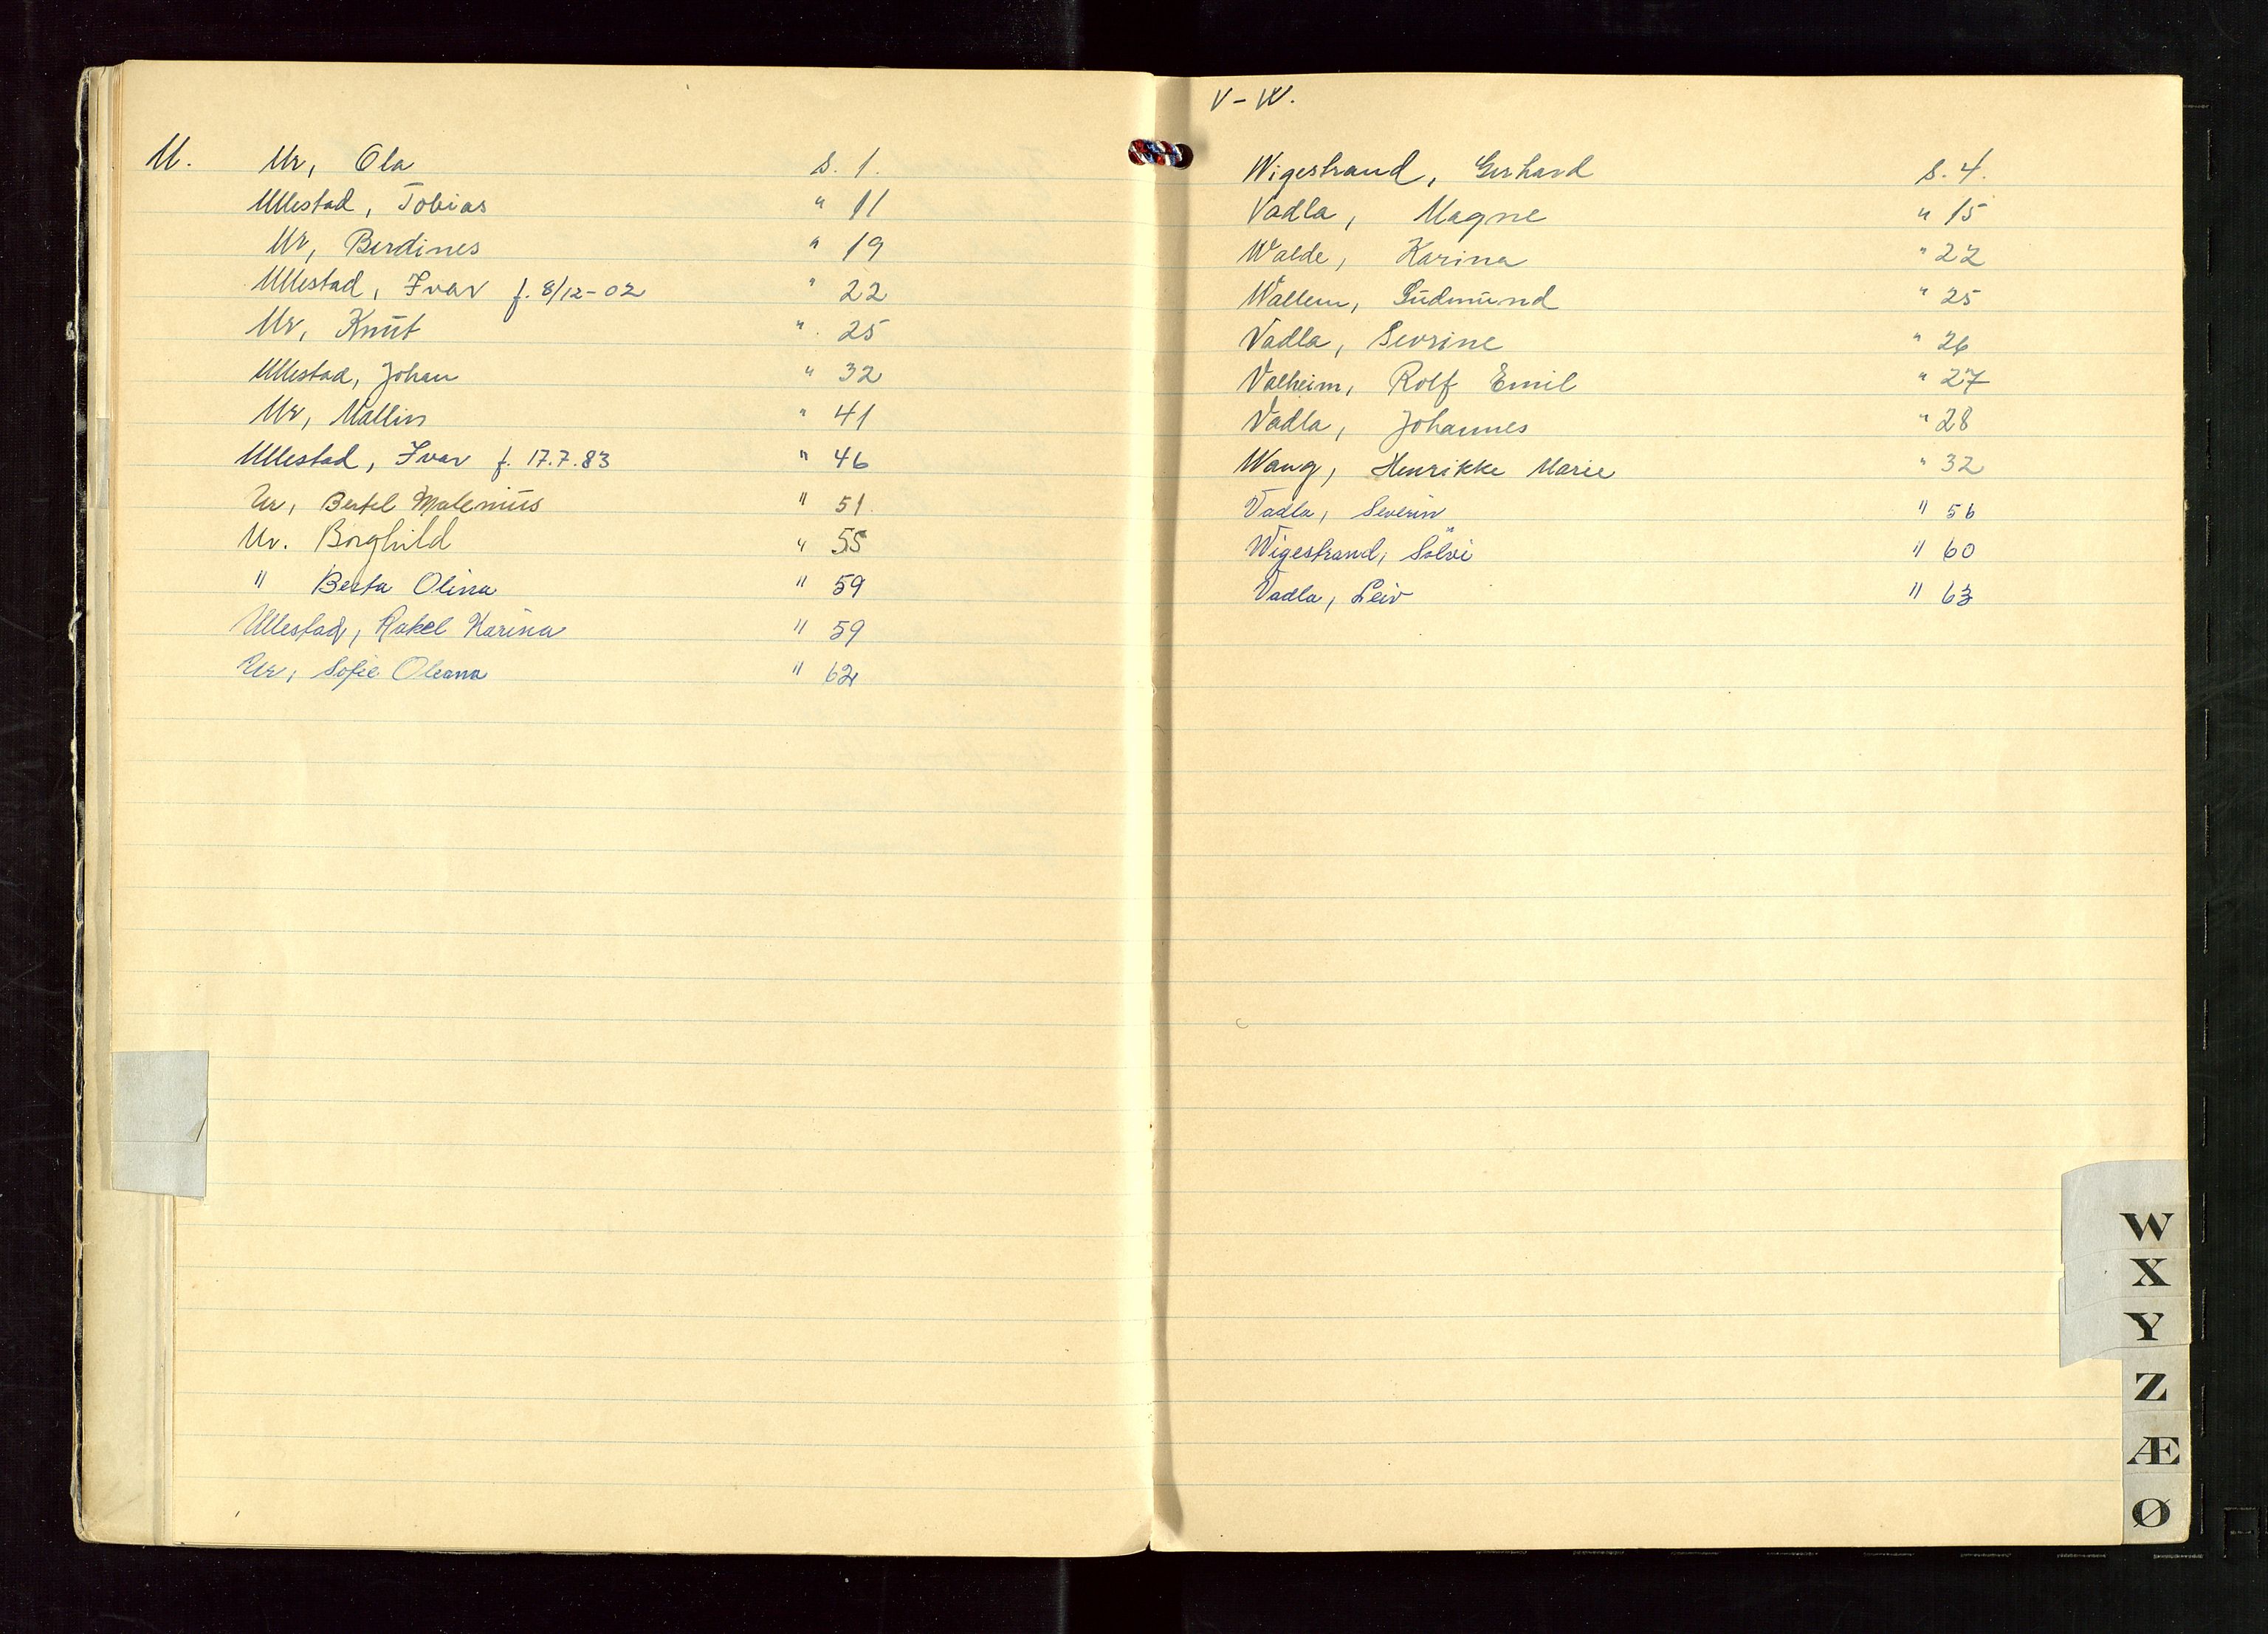 U. Ur, Ola s. 1.
Ullestad, Tobias " 11
Ur, Berdines " 19
Ullestad, Ivar f. 8/12-02 " 22
Ur, Knut " 25
Ullestad, Johan " 32
Ur, Mallin " 41
Ullestad, Ivar f. 17.7.83 " 46
Ur, Bertel Malenius " 51.
Ur. Borghild " 55
" Berta Olina " 59
Ullestad, Rakel Karina " 59
Ur, Sofie Oleana " 62
V - W.
Wigestrand, Gerhard s. 4.
Vadla, Magne " 15
Walde, Karina " 22
Wallem, Gudmund " 25
Vadla, Sevrine " 26
Valheim, Rolf Emil " 27
Vadla, Johannes " 28
Wang, Henrikke Marie " 32
Vadla, Severin " 56
Wigestrand, Sölvi " 60
Vadla, Leiv " 63
W
X
Y
Z
Æ
Ø